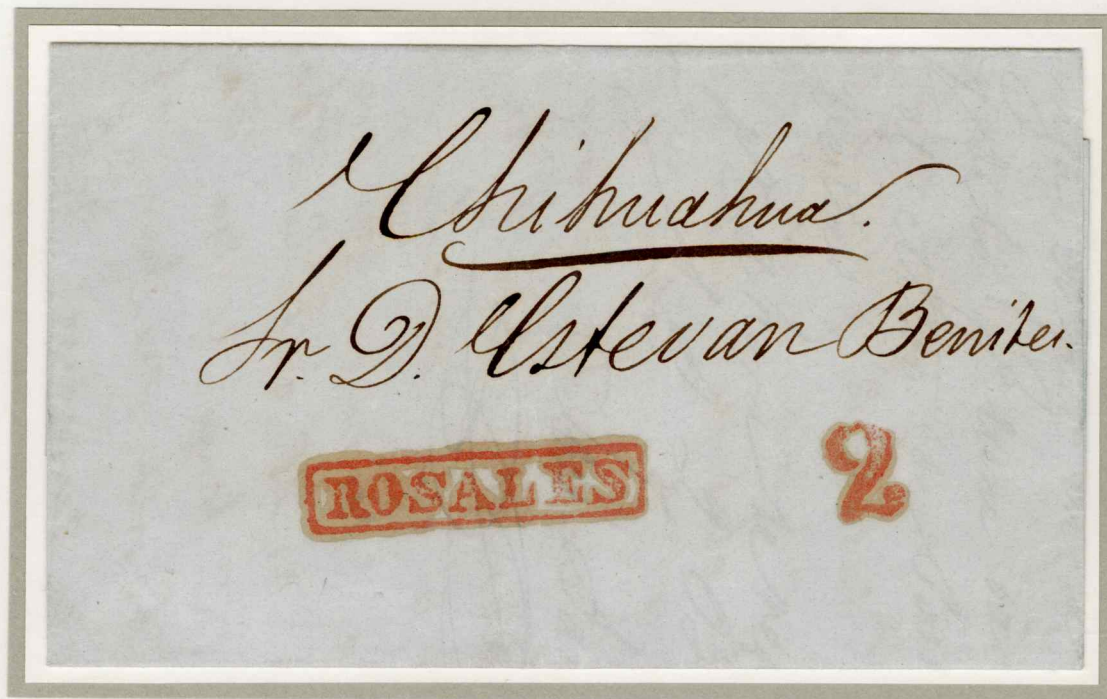 Chihuahua.
Sr. D. Estevan Benites.
ROSALES
2